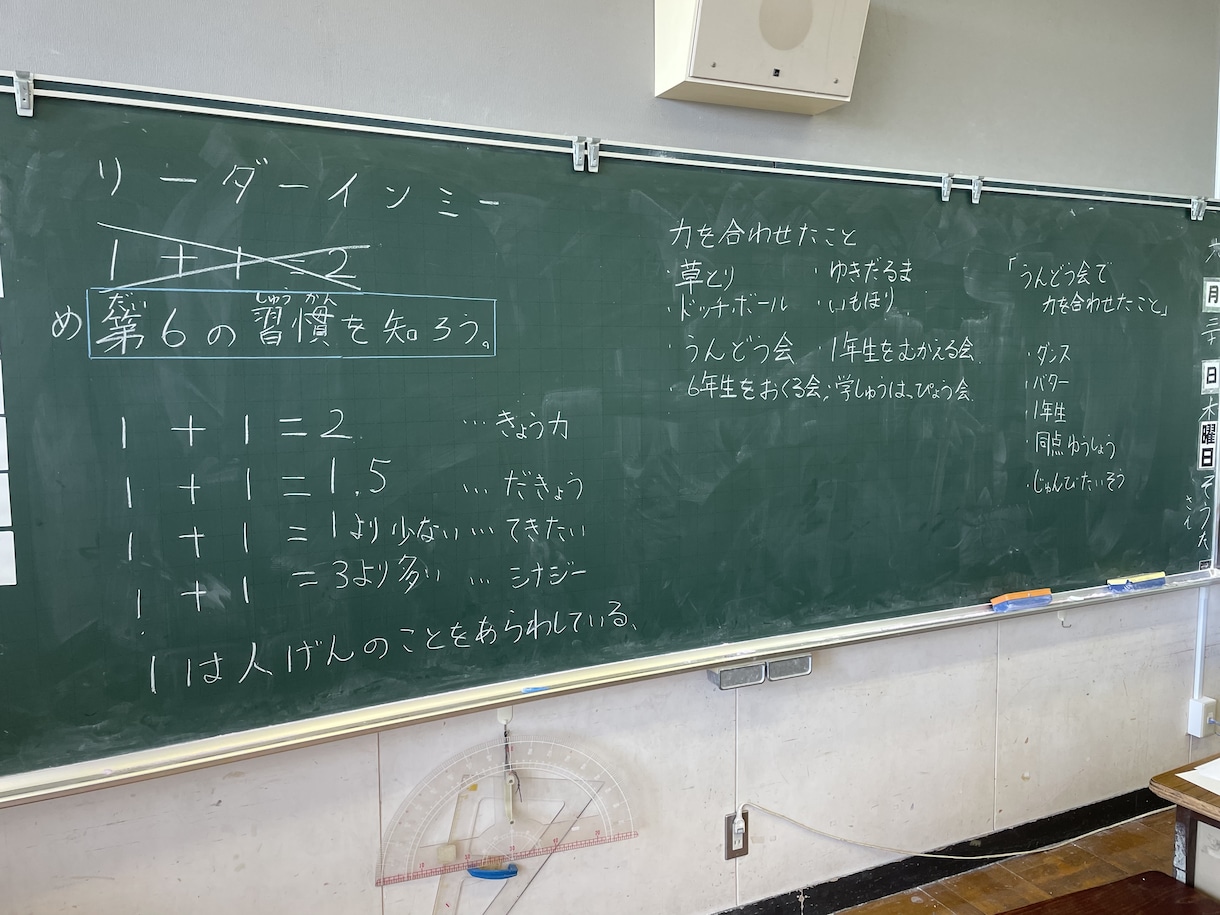 リーダーインミー
1+1=2
だい しゅう かん
め 第6の習慣を知ろう。
1+1=2 …きょう力
1+1=1.5 …だきょう
1+1=1より少ない…てきたい
1+1=3より多い…シナジー
1は人げんのことをあらわしている、
力を合わせたこと
・草とり ・ゆきだるま
・ドッチボール ・いもほり
・うんどう会 1年生をむかえる会、
・6年生をおくる会、・学しゅうはっぴょう会、
「うんどう会で
力を合わせたこと」
・ダンス
・バター
・1年生
・同点ゆうしょう
・じゅんびたいそう
月
日
木
曜
日